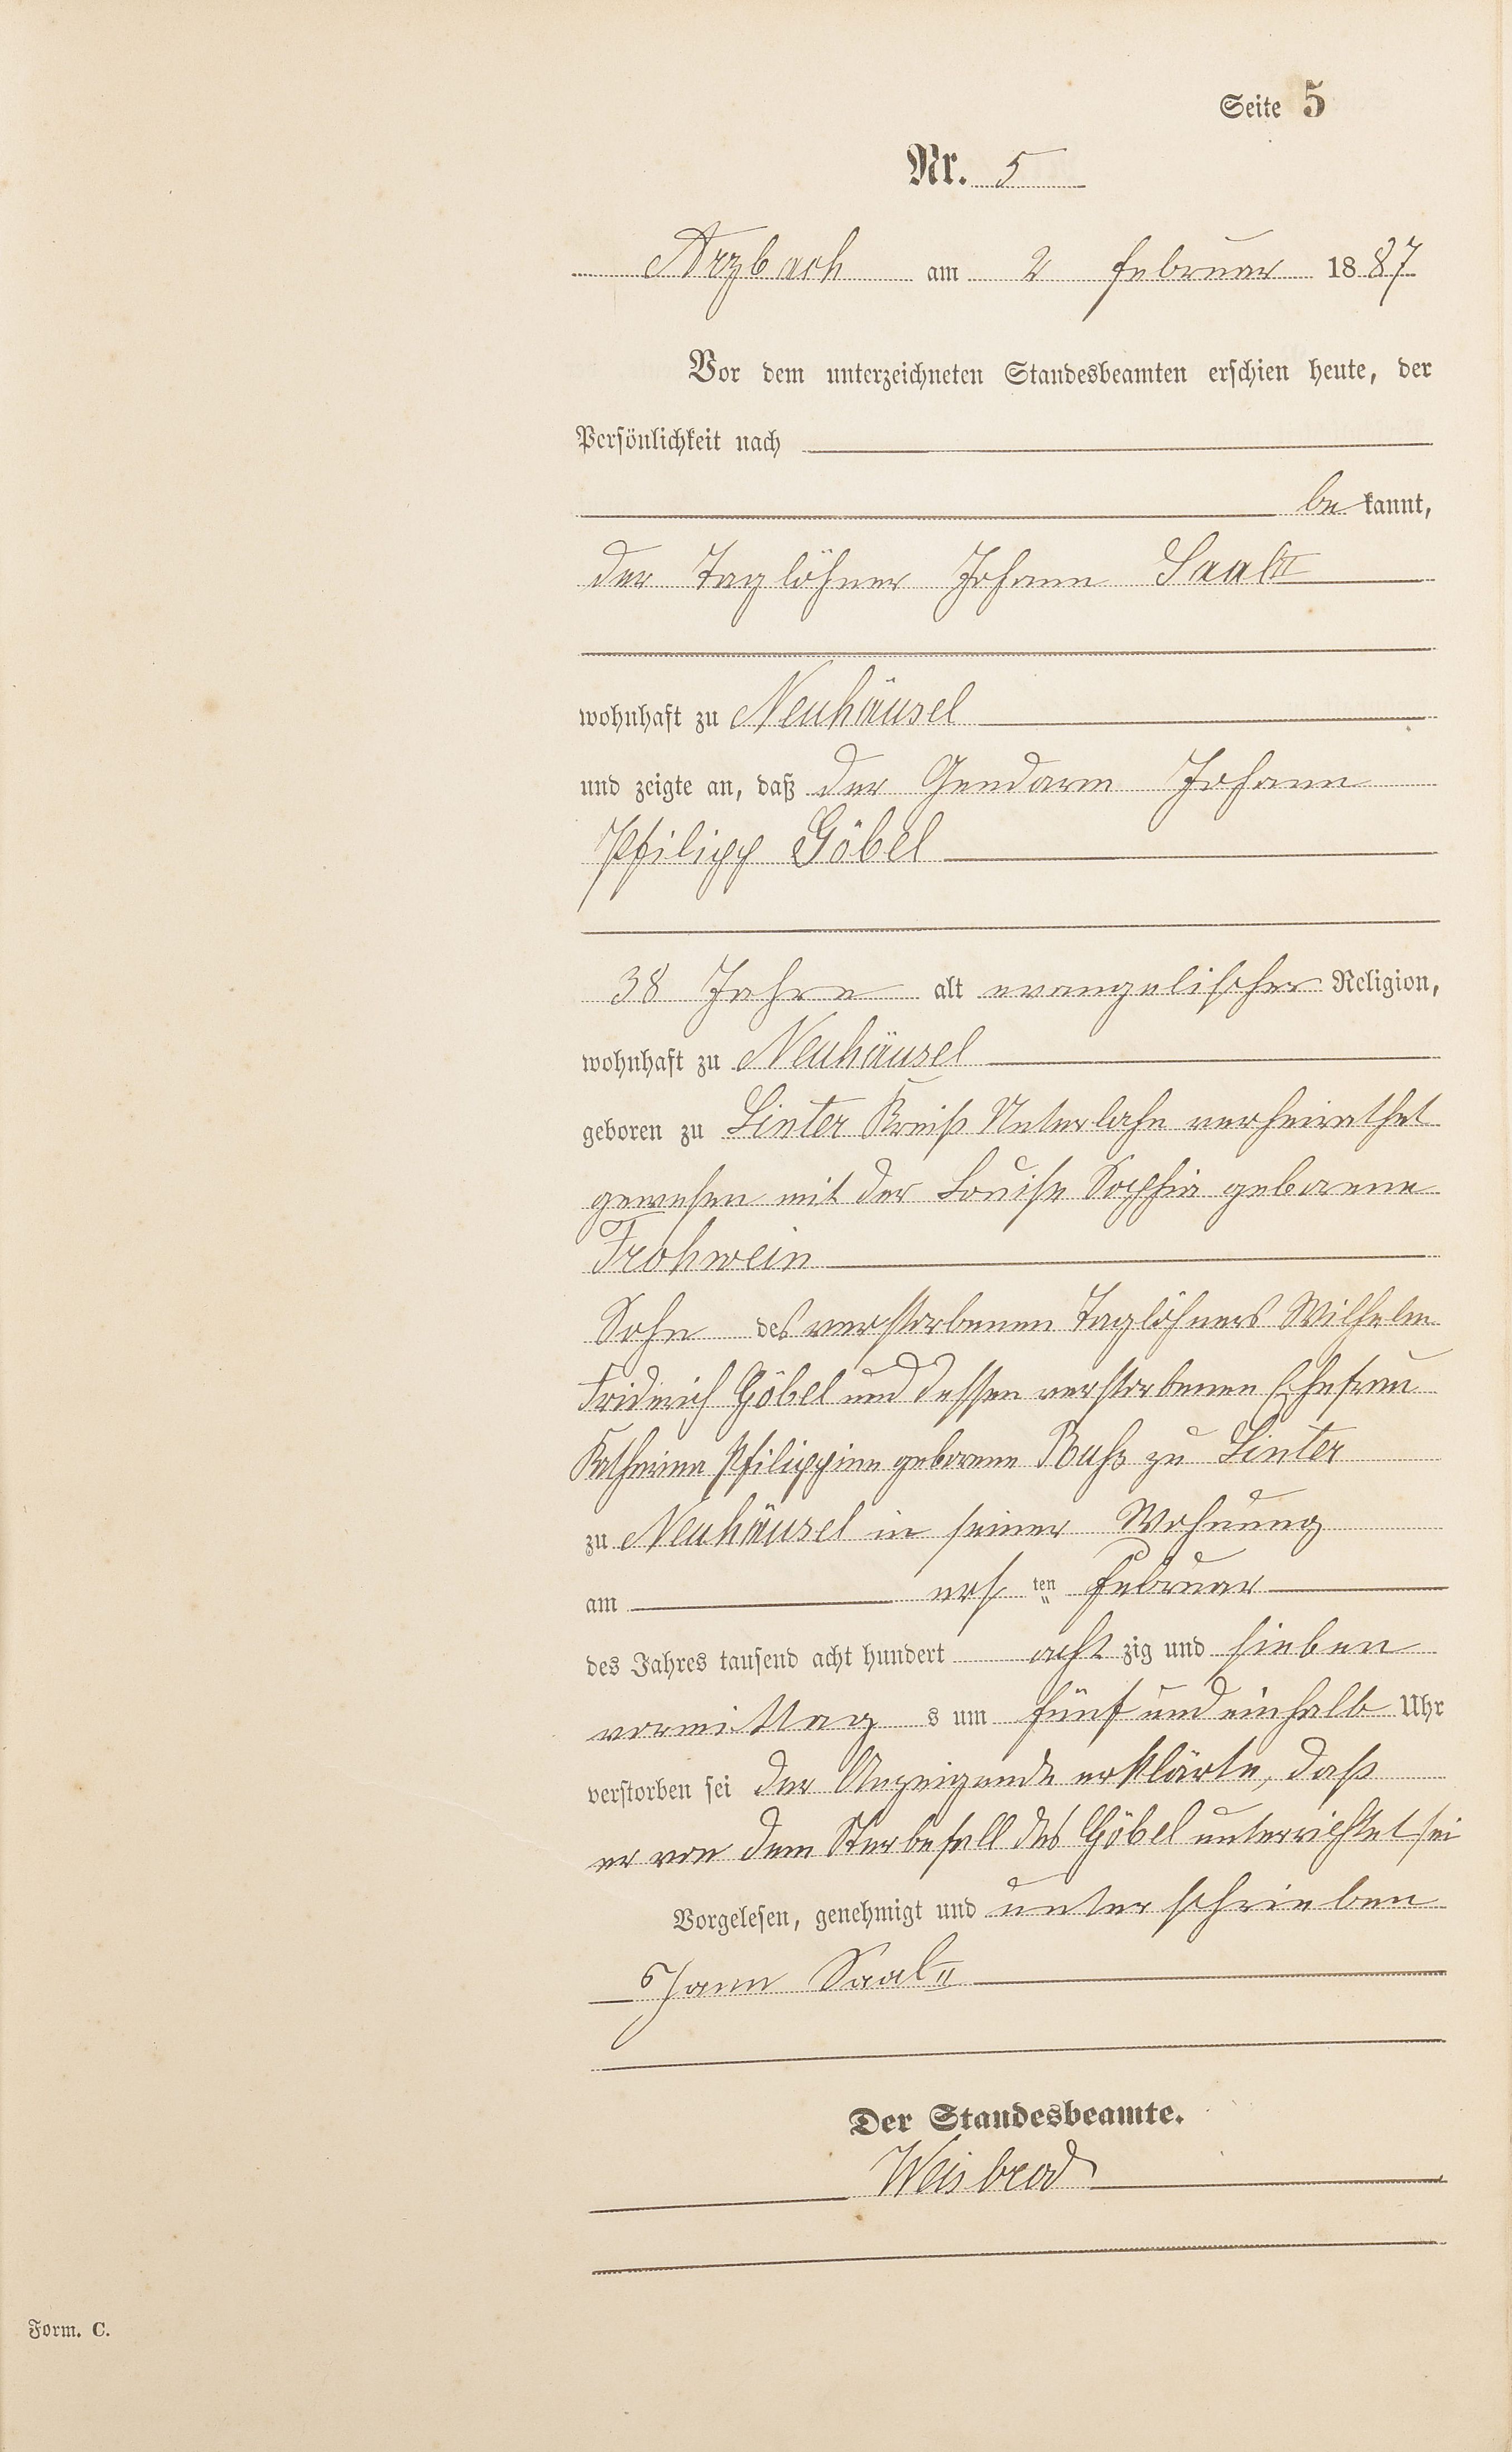 Seite 5
Nr. 5
Arzbach am 2 Februar 1887
Vor dem unterzeichneten Standesbeamten erschien heute, der
Persönlichkeit nach
be kannt,
der Taglöhner Johann Saal II
wohnhaft zu Neuhäusel
und zeigte an, daß der Gendarm Johann
Philipp Göbel
38 Jahre alt evangelischer Religion,
wohnhaft zu Neuhäusel
geboren zu Linter Kreiß Unterlahn verheirathet
gewesen mit der Louise Sophia geborene
Frohwein
Sohn des verstorbenen Taglöhners Wilhelm
Fridrich Göbel und dessen verstorbenen Ehefrau
Katharina Philippine geborene Buhs zu Linter
zu Neuhäusel in seiner Wohnung
am ers ten Februar
des Jahres tausend acht hundert acht zig und sieben
vormittag s um fünf und einhalb Uhr
verstorben sei der Anzeigende erklärte, daß
er von dem Sterbefall des Göbel unterrichtet sei
Vorgelesen, genehmigt und unterschrieben
Johann Saal II
Der Standesbeamte.
Weisbrod
Form. C.